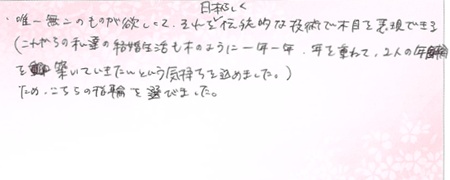 日本らしく
・唯一無二のものが欲しくて、それを伝統的な技術で木目を表現できる
(これからの私達の結婚生活も木のように一年一年、年を重ねて、2人の年輪
を築いていきたいという気持ちを込めました。)
ため、こちらの指輪を選びました。